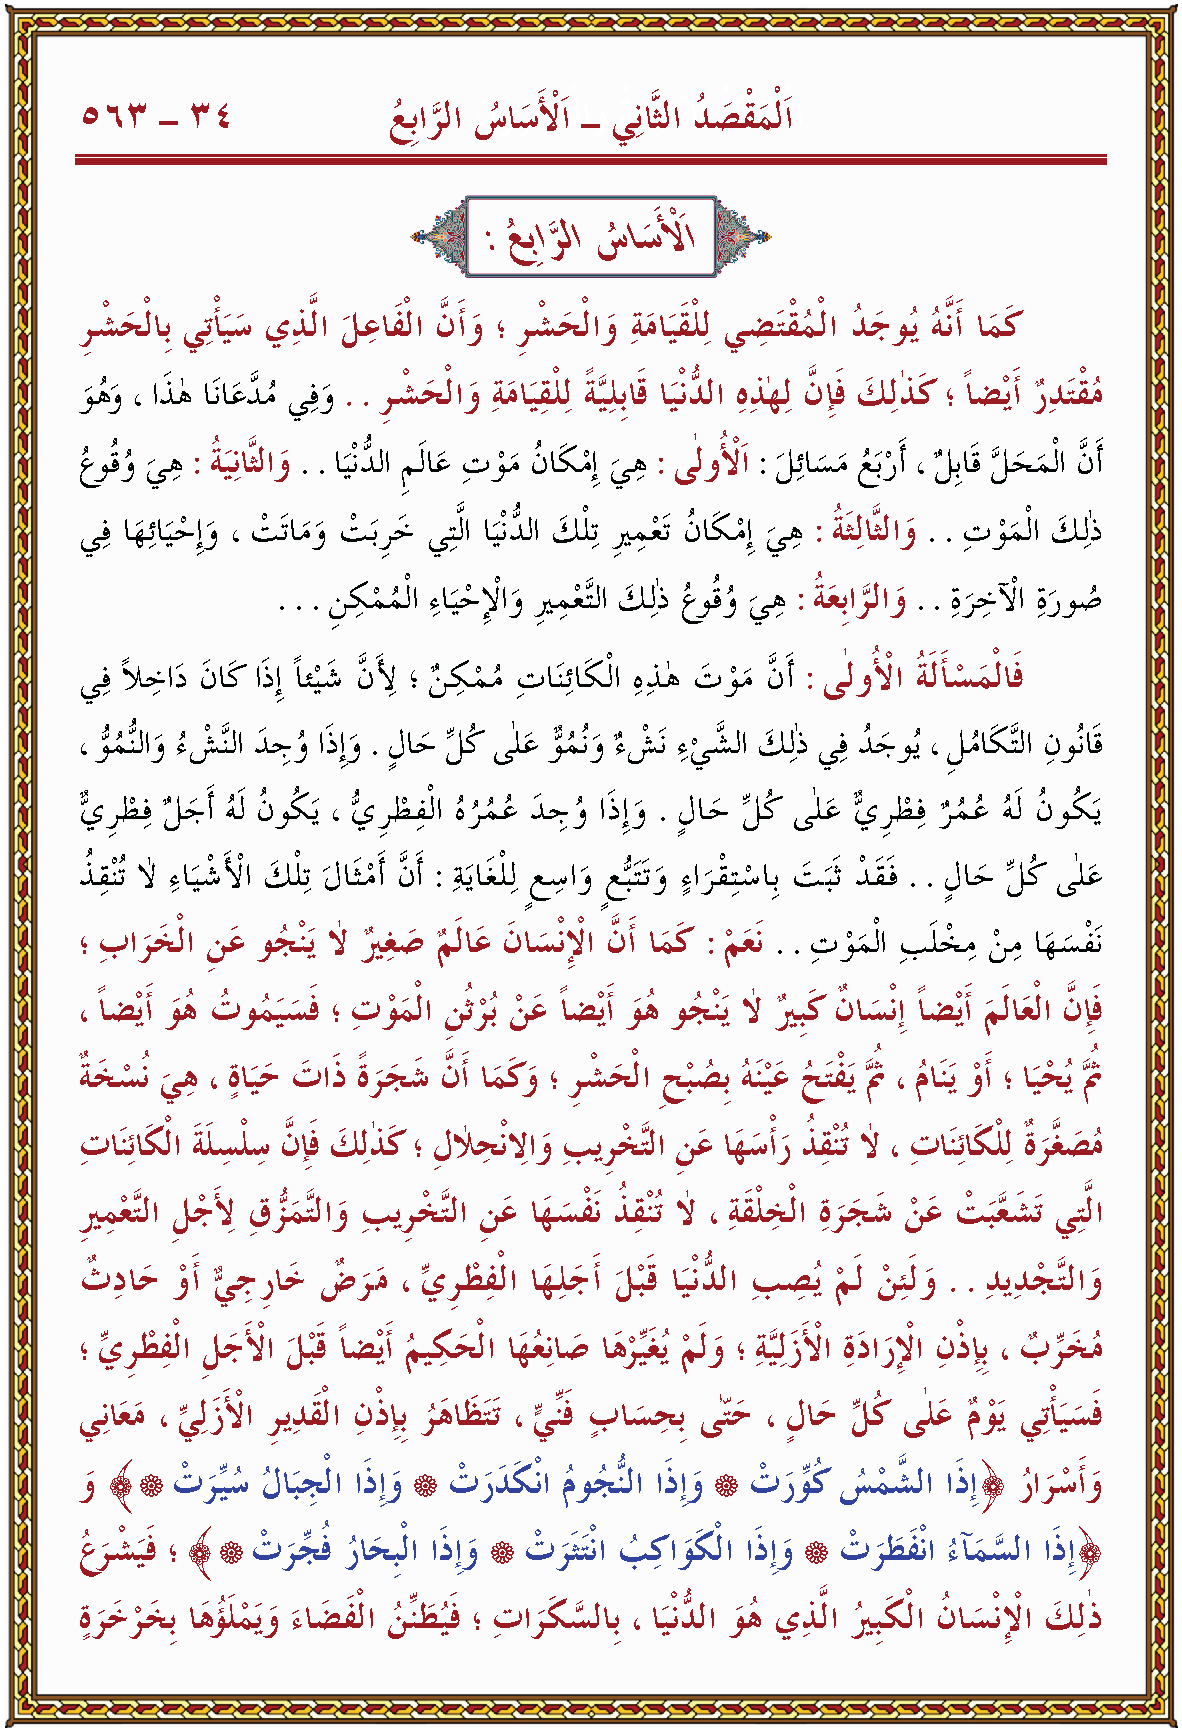 اَلْمَقْصَدُ الثَّانِي ــ اَلْأَسَاسُ الرَّابِعُ ٣٤ ــ ٥٦٣
اَلْأَسَاسُ الرَّابِعُ :
كَمَا أَنَّهُ يُوجَدُ الْمُقْتَضِي لِلْقَيَامَةِ وَالْحَشْرِ ؛ وَأَنَّ الْفَاعِلَ الَّذِي سَيَأْتِي بِالْحَشْرِ
مُقْتَدِرٌ أَيْضاً ؛ كَذٰلِكَ فَإِنَّ لِهٰذِهِ الدُّنْيَا قَابِلِيَّةً لِلْقِيَامَةِ وَالْحَشْرِ . . وَفِي مُدَّعَانَا هٰذَا ، وَهُوَ
أَنَّ الْمَحَلَّ قَابِلٌ ، أَرْبَعُ مَسَائِلَ : اَلْأُولٰى : هِيَ إِمْكَانُ مَوْتِ عَالَمِ الدُّنْيَا . . وَالثَّانِيَةُ : هِيَ وُقُوعُ
ذٰلِكَ الْمَوْتِ . . وَالثَّالِثَةُ : هِيَ إِمْكَانُ تَعْمِيرِ تِلْكَ الدُّنْيَا الَّتِي خَرِبَتْ وَمَاتَتْ ، وَإِحْيَائِهَا فِي
صُورَةِ الْآخِرَةِ . . وَالرَّابِعَةُ : هِيَ وُقُوعُ ذٰلِكَ التَّعْمِيرِ وَالْإِحْيَاءِ الْمُمْكِنِ . . .
فَالْمَسْأَلَةُ الْأُولٰى : أَنَّ مَوْتَ هٰذِهِ الْكَائِنَاتِ مُمْكِنٌ ؛ لِأَنَّ شَيْئاً إِذَا كَانَ دَاخِلاً فِي
قَانُونِ التَّكَامُلِ ، يُوجَدُ فِي ذٰلِكَ الشَّيْءِ نَشْءٌ وَنُمُوٌّ عَلٰى كُلِّ حَالٍ . وَإِذَا وُجِدَ النَّشْءُ وَالنُّمُوُّ ،
يَكُونُ لَهُ عُمُرٌ فِطْرِيٌّ عَلٰى كُلِّ حَالٍ . وَإِذَا وُجِدَ عُمُرُهُ الْفِطْرِيُّ ، يَكُونُ لَهُ أَجَلٌ فِطْرِيٌّ
عَلٰى كُلِّ حَالٍ . . فَقَدْ ثَبَتَ بِاسْتِقْرَاءٍ وَتَتَبُّعٍ وَاسِعٍ لِلْغَايَةِ : أَنَّ أَمْثَالَ تِلْكَ الْأَشْيَاءِ لاٰ تُنْقِذُ
نَفْسَهَا مِنْ مِخْلَبِ الْمَوْتِ . . نَعَمْ : كَمَا أَنَّ الْإِنْسَانَ عَالَمٌ صَغِيرٌ لاٰ يَنْجُو عَنِ الْخَرَابِ ؛
فَإِنَّ الْعَالَمَ أَيْضاً إِنْسَانٌ كَبِيرٌ لاٰ يَنْجُو هُوَ أَيْضاً عَنْ بُرْثُنِ الْمَوْتِ ؛ فَسَيَمُوتُ هُوَ أَيْضاً ،
ثُمَّ يُحْيَا ؛ أَوْ يَنَامُ ، ثُمَّ يَفْتَحُ عَيْنَهُ بِصُبْحِ الْحَشْرِ ؛ وَكَمَا أَنَّ شَجَرَةً ذَاتَ حَيَاةٍ ، هِيَ نُسْخَةٌ
مُصَغَّرَةٌ لِلْكَائِنَاتِ ، لاٰ تُنْقِذُ رَأْسَهَا عَنِ التَّخْرِيبِ وَالِانْحِلاٰلِ ؛ كَذٰلِكَ فَإِنَّ سِلْسِلَةَ الْكَائِنَاتِ
الَّتِي تَشَعَّبَتْ عَنْ شَجَرَةِ الْخِلْقَةِ ، لاٰ تُنْقِذُ نَفْسَهَا عَنِ التَّخْرِيبِ وَالتَّمَزُّقِ لِأَجْلِ التَّعْمِيرِ
وَالتَّجْدِيدِ . . وَلَئِنْ لَمْ يُصِبِ الدُّنْيَا قَبْلَ أَجَلِهَا الْفِطْرِيِّ ، مَرَضٌ خَارِجِيٌّ أَوْ حَادِثٌ
مُخَرِّبٌ ، بِإِذْنِ الْإِرَادَةِ الْأَزَلِيَّةِ ؛ وَلَمْ يُغَيِّرْهَا صَانِعُهَا الْحَكِيمُ أَيْضاً قَبْلَ الْأَجَلِ الْفِطْرِيِّ ؛
فَسَيَأْتِي يَوْمٌ عَلٰى كُلِّ حَالٍ ، حَتّٰى بِحِسَابٍ فَنِّيٍّ ، تَتَظَاهَرُ بِإِذْنِ الْقَدِيرِ الْأَزَلِيِّ ، مَعَانِي
وَأَسْرَارُ ﴿إِذَا الشَّمْسُ كُوِّرَتْ ۞ وَإِذَا النُّجُومُ انْكَدَرَتْ ۞ وَإِذَا الْجِبَالُ سُيِّرَتْ ۞﴾ وَ
﴿إِذَا السَّمَآءُ انْفَطَرَتْ ۞ وَإِذَا الْكَوَاكِبُ انْتَثَرَتْ ۞ وَإِذَا الْبِحَارُ فُجِّرَتْ ۞﴾ ؛ فَيَشْرَعُ
ذٰلِكَ الْإِنْسَانُ الْكَبِيرُ الَّذِي هُوَ الدُّنْيَا ، بِالسَّكَرَاتِ ؛ فَيُطَنِّنُ الْفَضَاءَ وَيَمْلَؤُهَا بِخَرْخَرَةٍ